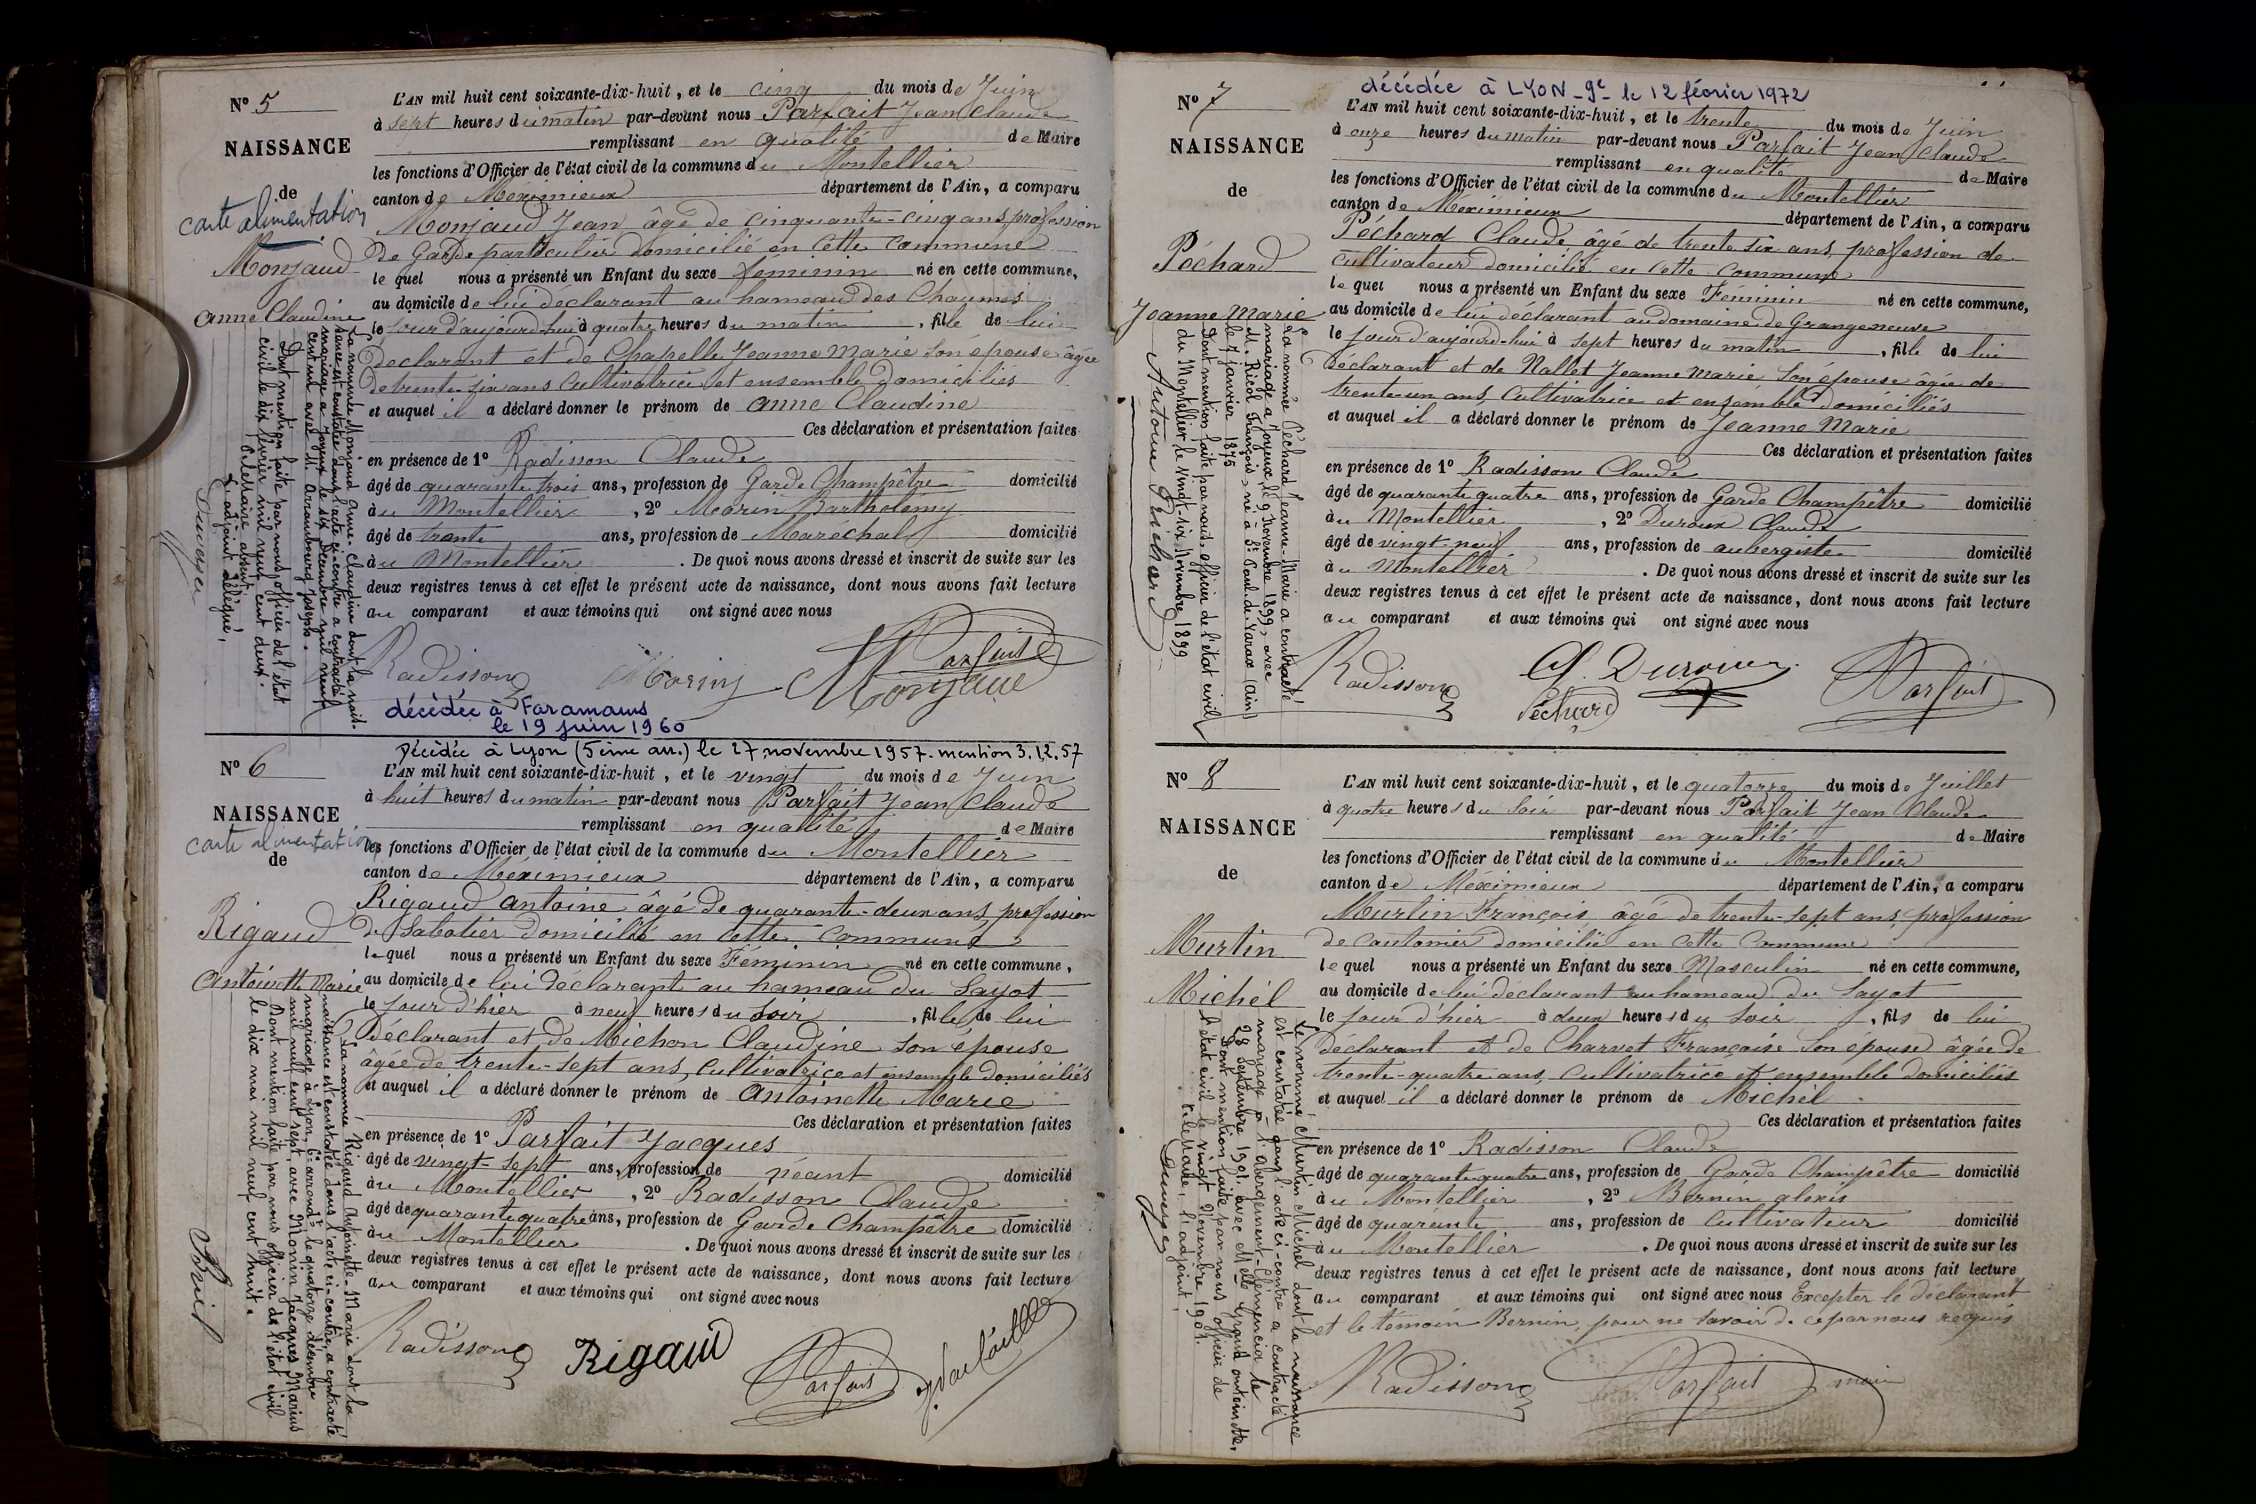 N° 5
NAISSANCE
de
carte alimentation
Monjaud
Anne Claudine
L'AN mil huit cent soixante-dix-huit, et le cinq du mois de Juin
à sept heures du matin par-devant nous Parfait Jean Claude
remplissant en qualité de Maire
les fonctions d'Officier de l'état civil de la commune du Montellier
canton de Meximieux département de l'Ain, a comparu
Monjaud Jean âgé de cinquante-cinq ans, profession
de Garde particulier domicilié en cette commune
le quel nous a présenté un Enfant du sexe féminin né en cette commune,
au domicile de lui déclarant au hameau des Chaumes
le jour d'aujourd'hui à quatre heures du matin, fille de lui
déclarant et de Chapelle Jeanne Marie son épouse âgée
de trente six ans cultivatrice et ensemble domiciliés
et auquel il a déclaré donner le prénom de Anne Claudine
Ces déclaration et présentation faites
en présence de 1° Radisson Claude
âgé de quarante trois ans, profession de Garde Champêtre domicilié
à du Montellier, 2° Morin Barthélemy
âgé de trente ans, profession de Maréchal domicilié
à du Montellier. De quoi nous avons dressé et inscrit de suite sur les
deux registres tenus à cet effet le présent acte de naissance, dont nous avons fait lecture
au comparant et aux témoins qui ont signé avec nous
Radisson Morin Parfait
Monjaud
décédée à Faramans
le 19 juin 1960
La nommée Monjaud Anne-Claudine dont la nais-
sance est constatée dans l'acte ci-contre a contracté
mariage à Joyeux le six décembre mil neuf
cent un avec M. Arambourg Joseph.
Dont mention faite par nous officier de l'état
civil le dix février mil neuf cent deux.
Le maire absent
L'adjoint délégué,
N° 6
NAISSANCE
carte alimentation
de
Rigaud
Antoinette Marie
Décédée à Lyon (5ème arr.) le 27 novembre 1957. mention 3.12.57
L'AN mil huit cent soixante-dix-huit, et le vingt du mois de Juin
à huit heures du matin par-devant nous Parfait Jean Claude
remplissant en qualité de Maire
les fonctions d'Officier de l'état civil de la commune du Montellier
canton de Méximieux département de l'Ain, a comparu
Rigaud Antoine âgé de quarante-deux ans, profession
de Sabotier domicilié en cette commune
le quel nous a présenté un Enfant du sexe Féminin né en cette commune,
au domicile de lui déclarant au hameau du Sayot
le jour d'hier à neuf heures du soir, fille de lui
déclarant et de Michon Claudine son épouse
âgée de trente-sept ans, cultivatrice et ensemble domiciliés
et auquel il a déclaré donner le prénom de Antoinette Marie
Ces déclaration et présentation faites
en présence de 1° Parfait Jacques
âgé de vingt-sept ans, profession de néant domicilié
à du Montellier, 2° Radisson Claude
âgé de quarante quatre ans, profession de Garde Champêtre domicilié
à du Montellier. De quoi nous avons dressé et inscrit de suite sur les
deux registres tenus à cet effet le présent acte de naissance, dont nous avons fait lecture
au comparant et aux témoins qui ont signé avec nous
Radisson Rigaud Parfait J. Parfait
La nommée Rigaud Antoinette-Marie dont la
naissance est constatée dans l'acte ci-contre, a contracté
mariage à Lyon, 6e arrondt le quatorze décembre
mil neuf cent sept, avec Monin Jacques Marius
Dont mention faite par nous officier de l'état civil
le dix mai mil neuf cent huit.
N° 7
NAISSANCE
de
Péchard
Jeanne Marie
décédée à LYON-9e- le 12 février 1972
L'AN mil huit cent soixante-dix-huit, et le trente du mois de Juin
à onze heures du matin par-devant nous Parfait Jean Claude
remplissant en qualité de Maire
les fonctions d'Officier de l'état civil de la commune du Montellier
canton de Meximieux département de l'Ain, a comparu
Péchard Claude, âgé de trente six ans, profession de
cultivateur domicilié en cette commune
le quel nous a présenté un Enfant du sexe Féminin né en cette commune,
au domicile de lui déclarant au domaine de Grangeneuve
le jour d'aujourd-hui à sept heures du matin, fille de lui
déclarant et de Nallet Jeanne Marie son épouse âgée de
trente-un ans, Cultivatrice et ensemble domiciliés
et auquel il a déclaré donner le prénom de Jeanne Marie
Ces déclaration et présentation faites
en présence de 1° Radisson Claude
âgé de quarante quatre ans, profession de Garde Champêtre domicilié
à du Montellier, 2° Duroux Claude
âgé de vingt-neuf ans, profession de aubergiste domicilié
à du Montellier. De quoi nous avons dressé et inscrit de suite sur les
deux registres tenus à cet effet le présent acte de naissance, dont nous avons fait lecture
au comparant et aux témoins qui ont signé avec nous
Radisson Cl. Duroux Parfait
Péchard
La nommée Péchard Jeanne-Marie a contracté
mariage à Joyeux, le 9 Novembre 1899, avec
M. Riedl François, né à St Paul-de-Varax (Ain)
le 7 janvier 1875
Dont mention faite par nous officier de l'état civil
du Montellier le vingt-six Novembre 1899
Antoine Péchard
N° 8
NAISSANCE
de
Murtin
Michel
L'AN mil huit cent soixante-dix-huit, et le quatorze du mois de Juillet
à quatre heures du soir par-devant nous Parfait Jean Claude
remplissant en qualité de Maire
les fonctions d'Officier de l'état civil de la commune du Montellier
canton de Méximieux département de l'Ain, a comparu
Murtin François âgé de trente-sept ans, profession
de cantonnier domicilié en cette commune
le quel nous a présenté un Enfant du sexe Masculin né en cette commune,
au domicile de lui déclarant au hameau du Sayot
le jour d'hier à deux heures du soir, fils de lui
déclarant et de Charvet Françoise son épouse âgée de
trente-quatre ans, Cultivatrice et ensemble domiciliés
et auquel il a déclaré donner le prénom de Michel
Ces déclaration et présentation faites
en présence de 1° Radisson Claude
âgé de quarante quatre ans, profession de Garde Champêtre domicilié
à du Montellier, 2° Bernin Alexis
âgé de quarante ans, profession de Cultivateur domicilié
à du Montellier. De quoi nous avons dressé et inscrit de suite sur les
deux registres tenus à cet effet le présent acte de naissance, dont nous avons fait lecture
au comparant et aux témoins qui ont signé avec nous Excepter le déclarant
et le témoin Bernin, pour ne savoir de ce par nous requis
Radisson Parfait maire
Le nommé Murtin Michel dont la naissance
est constatée dans l'acte ci-contre a contracté
mariage à l'Abergement-Clémenciat le
28 Septembre 1901. avec Melle Grand Antoinette,
Dont mention faite par nous officier de
l'état civil le vingt Novembre 1901.
P. le Maire, l'adjoint,